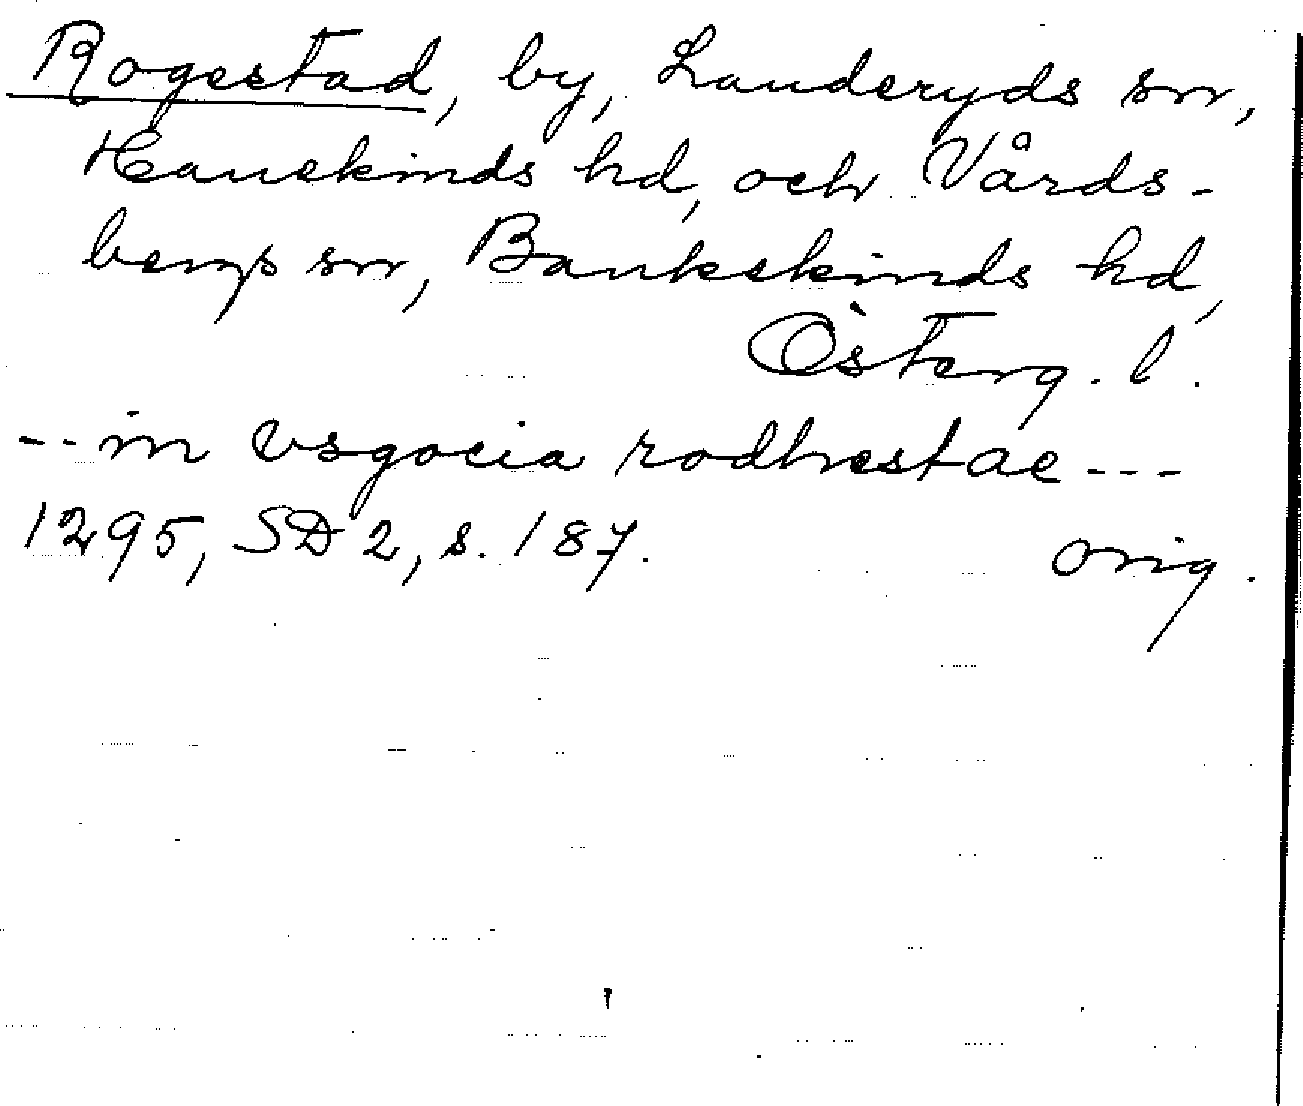 Rogestad, by, Landeryds sn,
Hanekinds hd, och Vårds-
bergs sn, Bankekinds hd,
Österg. l.
-- in osgocia rodhestae ---
1295, SD 2, s. 187. orig.